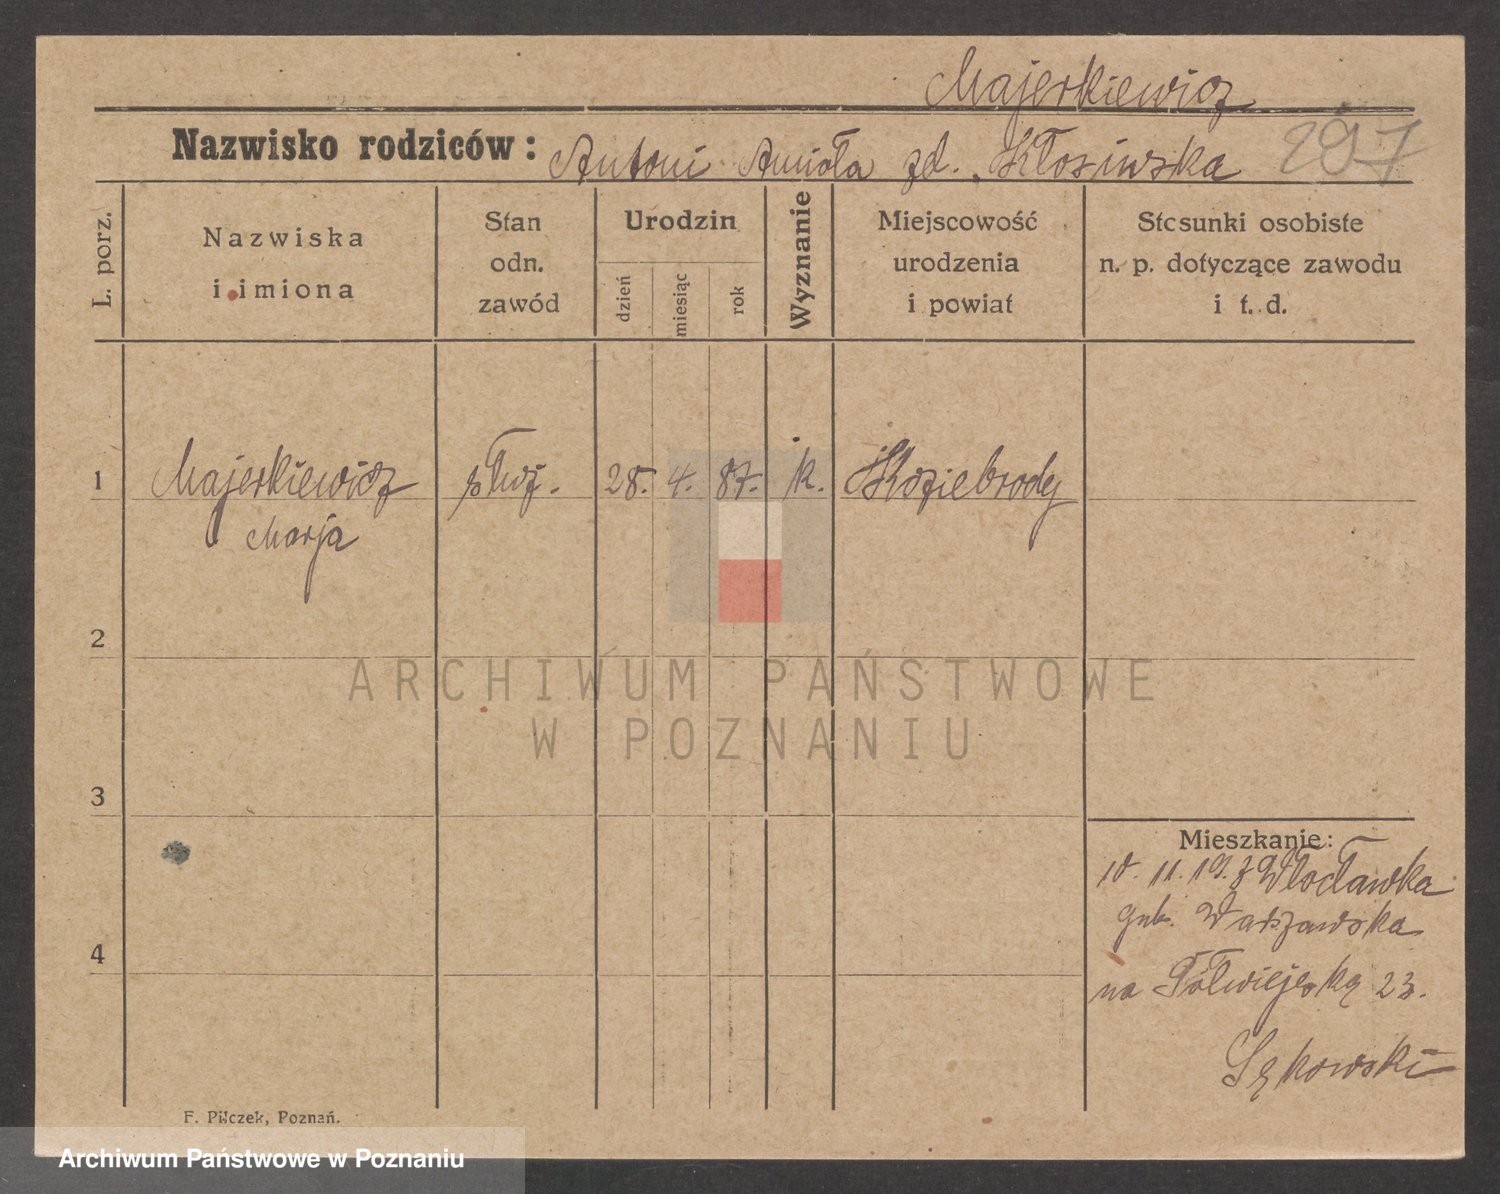 Majerkiewicz
Nazwisko rodziców: Antoni Anioła zd. Kłosińska 297
L. porz.
Nazwiska
i imiona
Stan
odn.
zawód
Urodzin
dzień
miesiąc
rok
Wyznanie
Miejscowość
urodzenia
i powiat
Stosunki osobiste
n. p. dotyczące zawodu
i t. d.
1 Majerkiewicz służ. 28. 4. 87. k. Koziebrody
Marja
2
ARCHIWUM PAŃSTWOWE
W POZNANIU
3
Mieszkanie:
10. 11. 19. z Włocławka
gub. Warszawska
4
na Półwiejską 23.
Sękowski
F. Pilczek, Poznań.
Archiwum Państwowe w Poznaniu